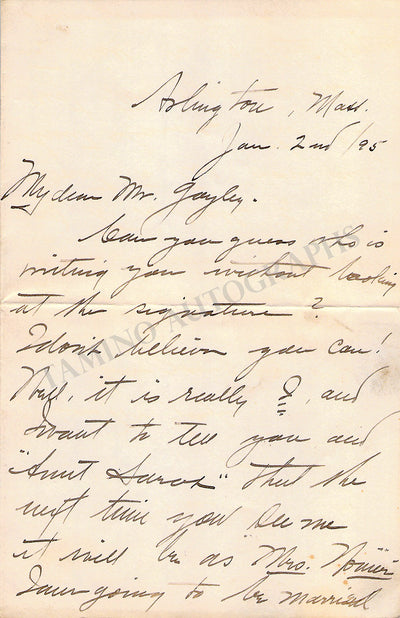 Arlington, Mass.
Jan. 2nd /95
My dear Mr. Gayley.
Can you guess who is
writing you without looking
at the signature?
I don't believe you can!
Well, it is really I, and
I want to tell you and
"Aunt Sarah" that the
next time you see me
it will be as "Mrs.
I am going to be married
TAMINO AUTOGRAPHS